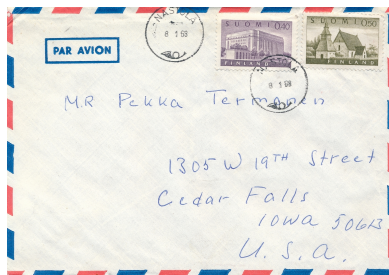 NASTOLA
8 1 68
SUOMI 0,40
FINLAND
SUOMI 0,50
FINLAND
PAR AVION
NASTOLA
8 1 68
MR Pekka Termonen
1305 W 19TH Street
Cedar Falls
Iowa 50613
U.S.A.